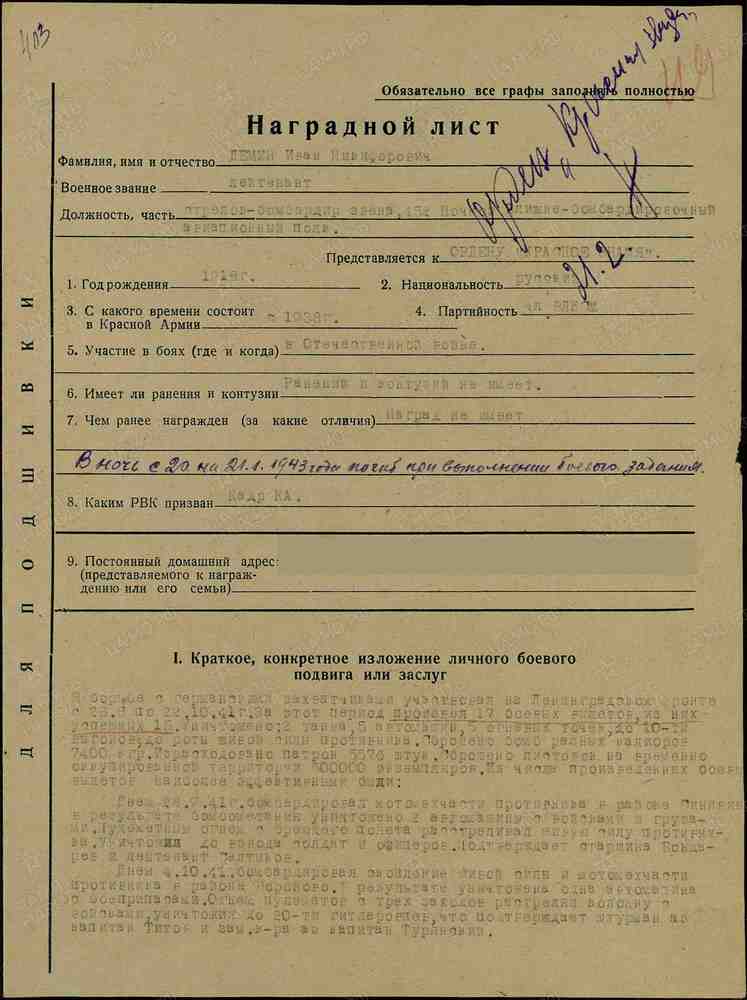 403
Обязательно все графы заполнять полностью
Орден Красное
21.2.
Наградной лист
Фамилия, имя и отчество ДЕМИН Иван Никифорович
Военное звание лейтенант
Должность, часть стрелок-бомбардир звена,
авиационный полк.
Представляется к ОРДЕНУ "КРАСНОЕ ЗНАМЯ".
1. Год рождения 1918г. 2. Национальность русский
3. С какого времени состоит
в Красной Армии с 1938г. 4. Партийность чл ВЛКСМ
5. Участие в боях (где и когда) в Отечественной войне.
6. Имеет ли ранения и контузии Ранений и контузий не имеет.
7. Чем ранее награжден (за какие отличия) Наград не имеет
В ночь с 20 на 21.1.1943 года погиб при выполнении боевого задания.
8. Каким РВК призван Кадр КА.
9. Постоянный домашний адрес:
(представляемого к награж-
дению или его семьи)
ДЛЯ ПОДШИВКИ
I. Краткое, конкретное изложение личного боевого
подвига или заслуг
В борьбе с германскими захватчиками участвовал на Ленинградском фронте
по 22.10.41г. За этот период произвел 17 боевых вылетов, из них
успешных 15. Уничтожено: 2 танка, 5 автомашин, 5 огневых точек, до 10-ти
вагонов, до роты живой силы противника. Сброшено бомб разных калибров
7400 кгр. Израсходовано патрон 5576 штук. Сброшено листовок на временно
оккупированной территории экземпляров. Из числа произведенных боевых
вылетов наиболее эффективными были:
Днем бомбардировал мотомехчасти противника в районе
в результате бомбометания уничтожено 2 автомашины с войсками и груза-
ми. Пулеметным огнем с бреющего полета расстреливал живую силу противни-
ка, уничтожил до взвода солдат и офицеров. Подтверждает старшина Бонда-
рев и лейтенант Салтыков.
Днем 4.10.41. бомбардировал скопление живой силы и мотомехчасти
противника в районе В результате уничтожена одна автомашина
с боеприпасами. Огнем пулеметов с трех заходов расстрелял колонну с
войсками, уничтожил до 20-ти гитлеровцев, что подтверждает штурман аэ
капитан Титов и зам. к-ра аэ капитан Турянский.